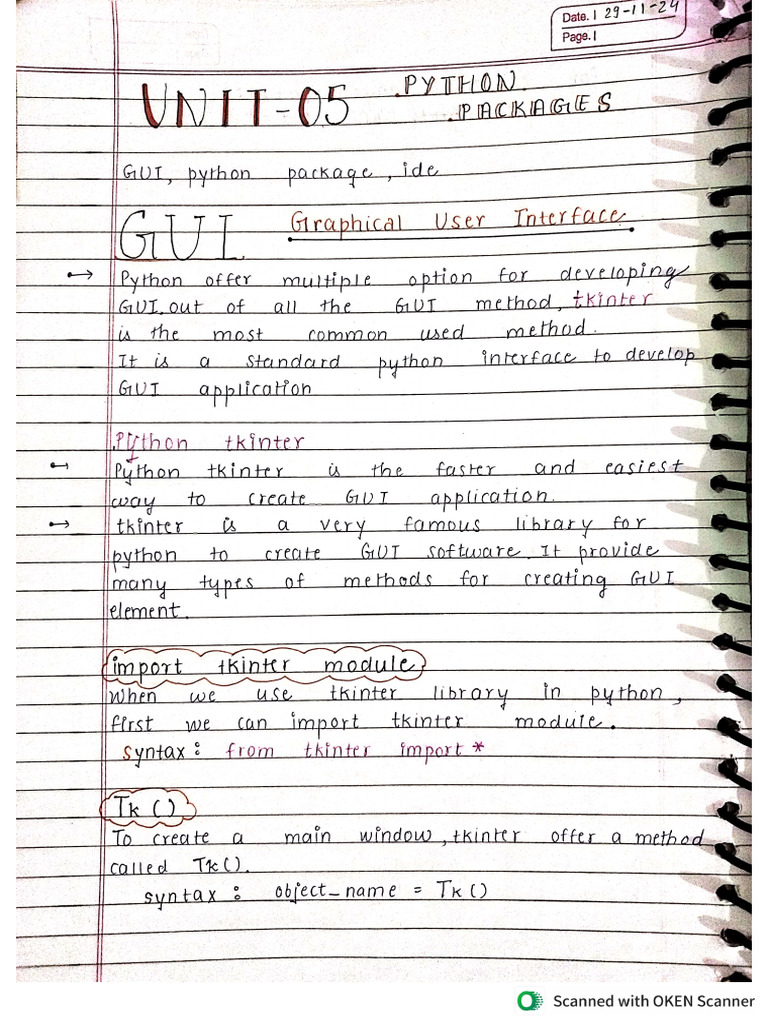 Date. | 29-11-24
Page. |
UNIT-05 PYTHON
PACKAGES
GUI, python package, ide
GUI Graphical User Interface
Python offer multiple option for developing
GUI. out of all the GUI method, tkinter
is the most common used method.
It is a standard python interface to develop
GUI application
Python tkinter
Python tkinter is the faster and easiest
way to create GUI application.
tkinter is a very famous library for
python to create GUI software. It provide
many types of methods for creating GUI
element.
import tkinter module
When we use tkinter library in python,
first we can import tkinter module.
syntax: from tkinter import *
Tk ()
To create a main window, tkinter offer a method
called Tk().
syntax: object_name = Tk()
Scanned with OKEN Scanner